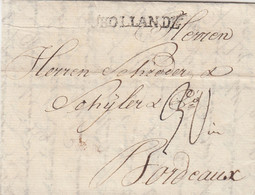 HOLLANDE
Herren
Herren Schröder &
Schÿler & Co
in
Bordeaux